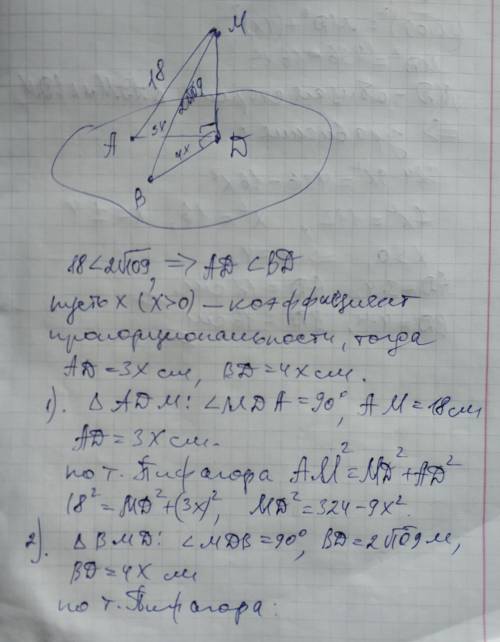 M
18
2√109
A
3x
D
4x
B
18 < 2√109, => AD < BD
пусть x (x>0) — коэффициент
пропорциональности, тогда
AD = 3x см, BD = 4x см.
1). △ ADM: ∠MDA = 90°, AM = 18 см
AD = 3x см.
по т. Пифагора AM² = MD² + AD²
18² = MD² + (3x)², MD² = 324 - 9x².
2). △ BMD: ∠MDB = 90°, BD = 2√109 м,
BD = 4x см
по т. Пифагора: